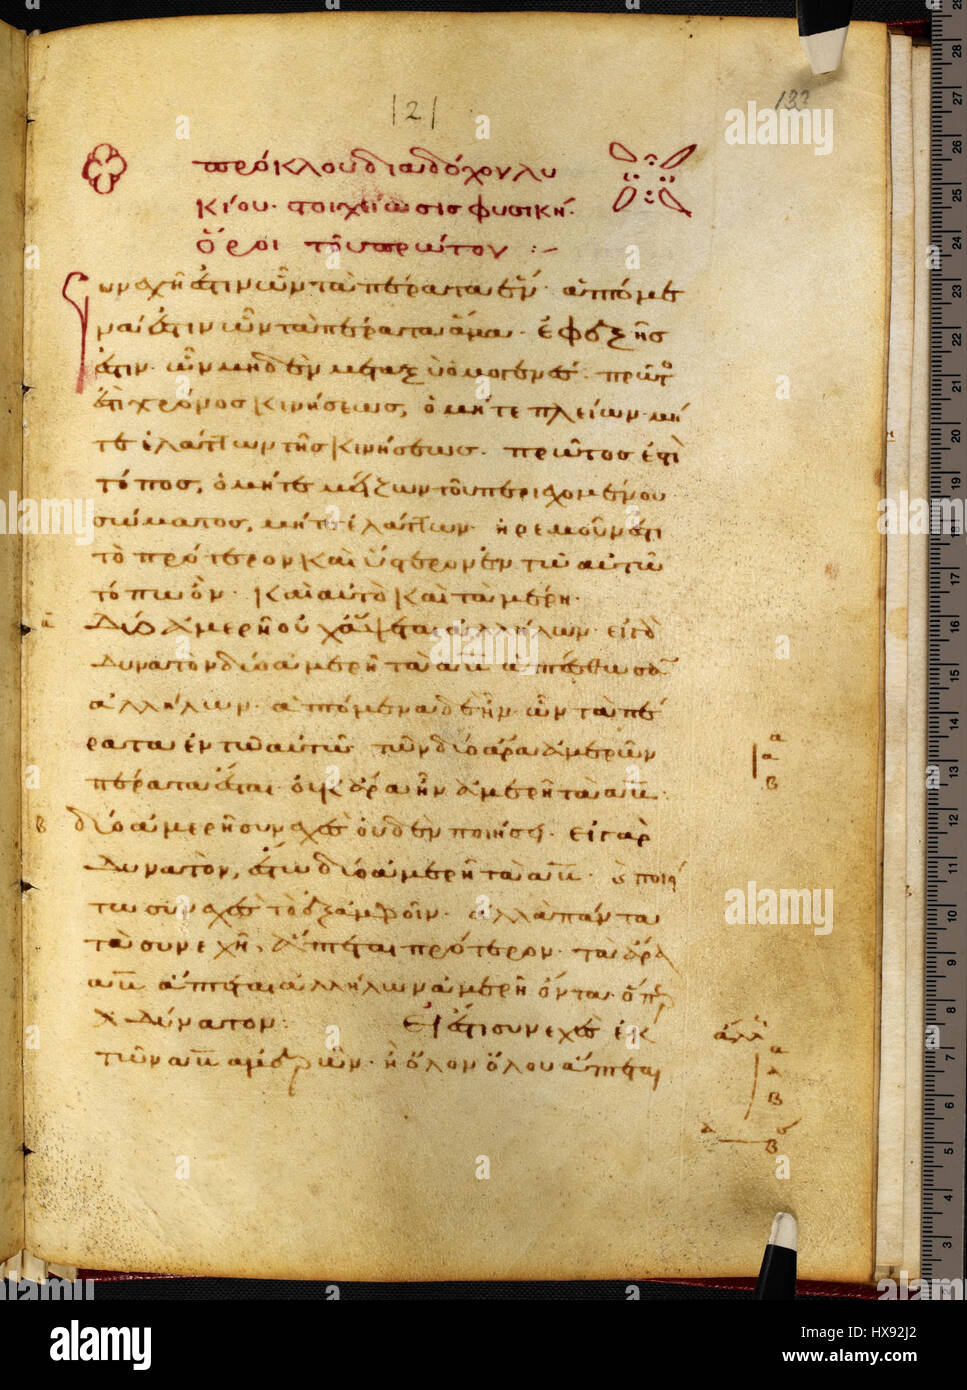 121
133
πρόκλου διαδόχου λυ
κίου στοιχείωσις φυσική·
ὅροι τοῦ πρώτου :~
υνεχῆ ἐστιν ὧν τὰ πέρατα ἕν· ἁπτόμε
να ἐστιν ὧν τὰ πέρατα ἅμα· ἐφεξῆς
ἐστιν ὧν μηδὲν μεταξὺ ὁμογενές· πρῶτος
ἐστι χρόνος κινήσεως, ὁ μήτε πλείων μή
τε ἐλάττων τῆς κινήσεως· πρῶτος ἐστὶ
τόπος, ὁ μήτε μείζων τοῦ περιεχομένου
σώματος, μήτε ἐλάττων· ἠρεμοῦν ἐστι
τὸ πρότερον καὶ ὕστερον ἐν τῶ αὐτῶ
τόπω ὂν· καὶ αὐτὸ καὶ τὰ μέρη·
α
Δύο ἀμερῆ οὐχ ἅψεται ἀλλήλων· εἰ γὰρ
δυνατὸν δύο ἀμερῆ τὰ αβ ἁπτέσθωσαν
ἀλλήλων· ἁπτόμενα δὲ ἦν ὧν τὰ πέ
ρατα ἐν τῶ αὐτῶ· τῶν δύο ἄρα ἀμερῶν
πέρατα ἔσται· οὐκ ἄρα ἦν ἀμερῆ τὰ αβ·
β
δύο ἀμερῆ συνεχὲς οὐδὲν ποιήσει· εἰ γὰρ
δυνατὸν, ἔστω δύο ἀμερῆ τὰ αβ· καὶ ποιεί
τω συνεχὲς τὸ ἐξ ἀμφοῖν· ἀλλὰ πάντα
τὰ συνεχῆ, ἅπτεται πρότερον· τὰ ἄρα
αβ ἅπτεται ἀλλήλων ἀμερῆ ὄντα· ὅπερ
ἀδύνατον: Εἰ ἔστι συνεχὲς ἐκ
τῶν αβ ἀμερῶν· ἢ ὅλον ὅλου ἅπτεται
α
β
α
β
α
β
alamy
alamy
Image ID: HX92J2
www.alamy.com